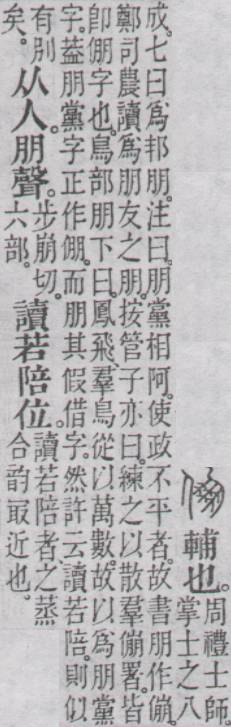 倗 輔也。周禮士師
掌士之八
成。七曰爲邦朋。注曰。朋黨相阿。使政不平者。故書朋作傰。
鄭司農讀爲朋友之朋。按管子亦曰。練之以散羣傰署。皆
卽倗字也。鳥部朋下曰。鳳飛。羣鳥從以萬數。故以爲朋黨
字。葢朋黨字正作倗。而朋其假借字。然許云讀若陪。則似
有別
矣。
从人。朋聲。步崩切。
六部。
讀若陪位。讀若陪者。之蒸
合韵冣近也。